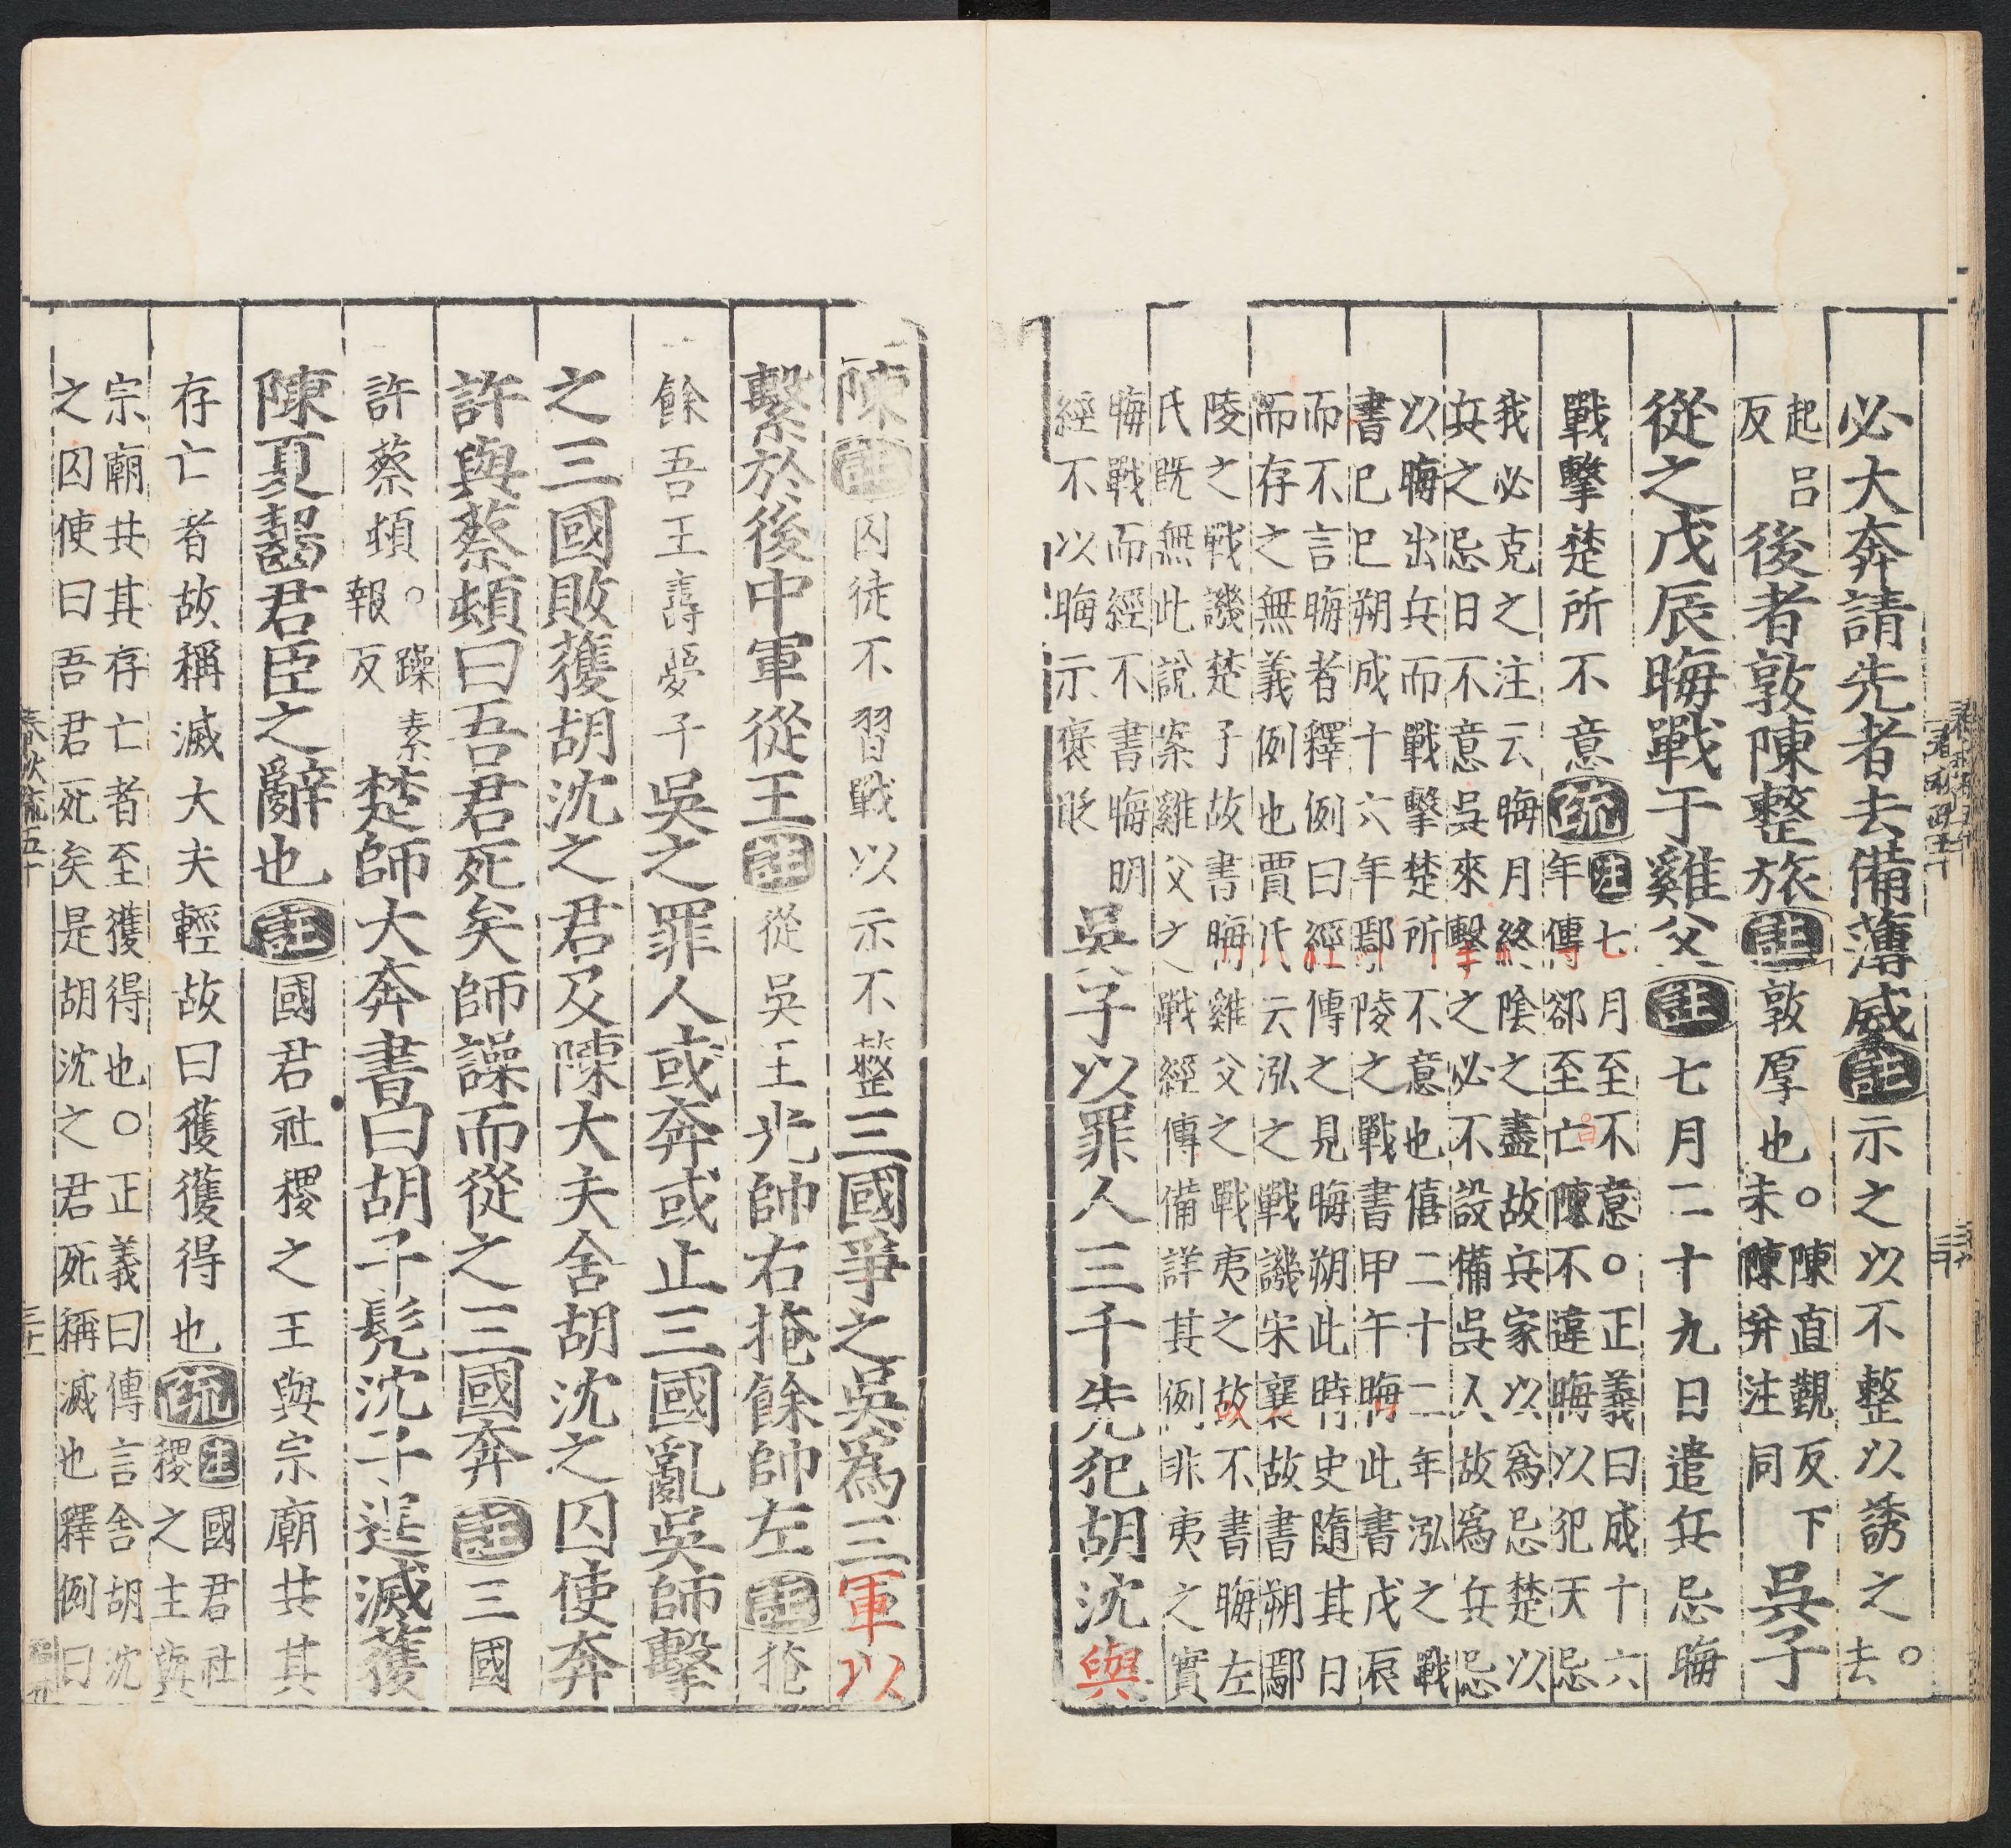 必大奔請先者去備薄威註示之以不整以誘之。去
起呂
反
後者敦陳整旅註敦厚也。
陳直觀反下
未陳幷注同
吳子
從之戊辰晦戰于雞父註七月二十九日遣兵忌晦
戰擊楚所不意疏
注七月至不意○正義曰成十六
年傳郤至亡陳不違晦以犯天忌
我必克之注云晦月終陰之盡故兵家以爲忌楚以
兵之忌日不意吳來擊之必不設備吳人故爲兵忌
以晦出兵而戰擊楚所不意也僖二十二年泓之戰
書巳巳朔成十六年鄢陵之戰書甲午晦此書戊辰
而不言晦者釋例曰經傳之見晦朔此時史隨其日
而存之無義例也賈氏云泓之戰譏宋襄故書朔鄢
陵之戰譏楚子故書晦雞父之戰夷之故不書晦左
氏既無此說案雞父之戰經傳備詳其例非夷之實
晦戰而經不書晦明
經不以晦示褒貶
吳子以罪人三千先犯胡沈與
陳註囚徒不習戰以示不整三國爭之吳爲三軍以
繫於後中軍從王註從吳王光帥右掩餘帥左註掩
餘吾王壽夢子吳之罪人或奔或止三國亂吳師擊
之三國敗獲胡沈之君及陳大夫舍胡沈之囚使奔
許與蔡頓曰吾君死矣師譟而從之三國奔註三國
許蔡頓。
躁素
報反
楚師大奔書曰胡子髠沈子逞滅獲
陳夏齧君臣之辭也註國君社稷之王與宗廟共其
存亡者故稱滅大夫輕故曰獲獲得也疏
注國君社
稷之主與
宗廟共其存亡者至獲得也○正義曰傳言舍胡沈
之囚使曰吾君死矣是胡沈之君死稱滅也釋例曰
春秋疏五十
三十一